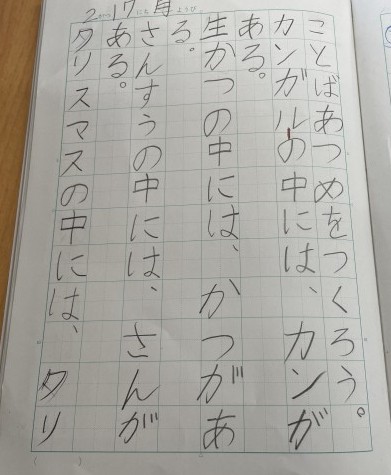 2がつ17にち ようび
ことばあつめをつくろう。
カンガルーの中には、カンが
ある。
生かつの中には、かつがあ
る。
さんすうの中には、さんが
ある。
タリスマスの中には、タリ